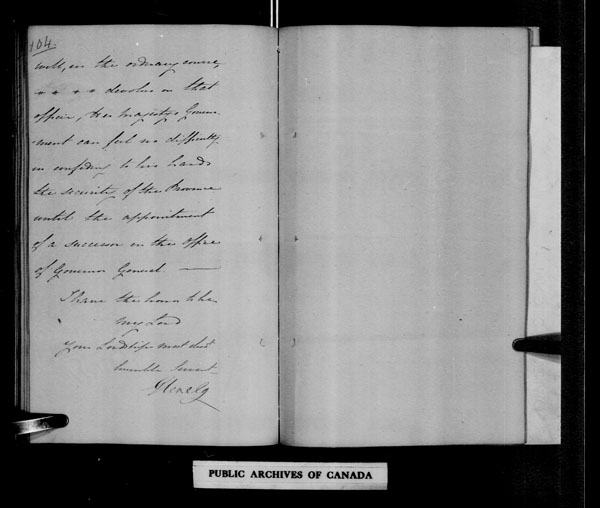 104.
will, in the ordinary course,
* * * devolve on that
officer, Her Majesty's Govern-
ment can feel no difficulty
in confiding to his hands
the security of the Province
until the appointment
of a successor in the office
of Governor General. —
I have the honor to be
My Lord
Your Lordships most obedt
humble Servt
Glenelg
PUBLIC ARCHIVES OF CANADA